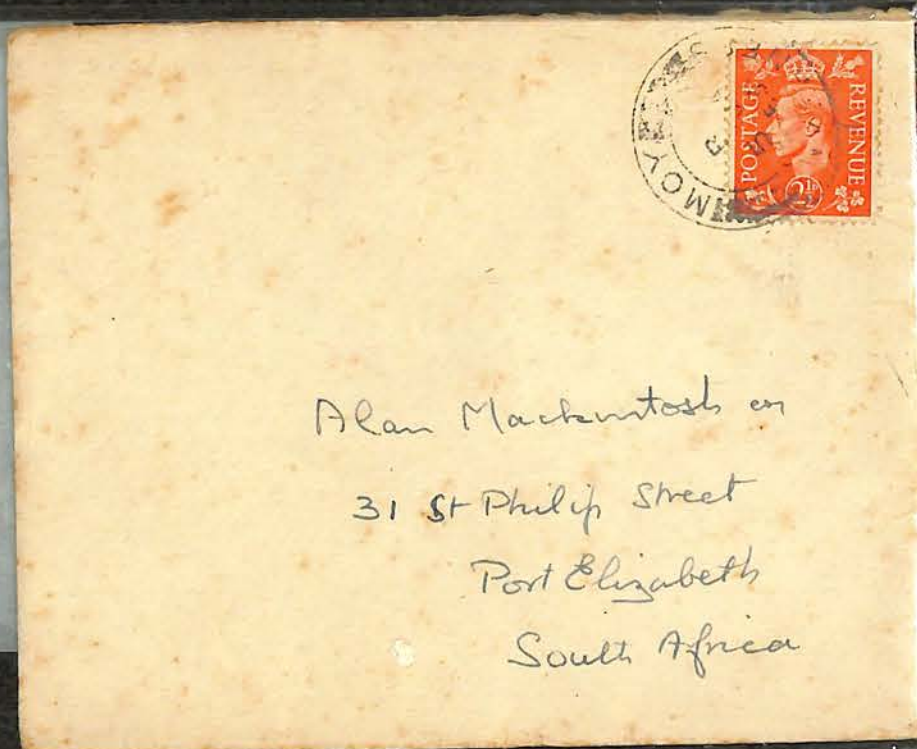 POSTAGE REVENUE
2½D
MOY
Alan Mackintosh esq
31 St Philip Street
Port Elizabeth
South Africa